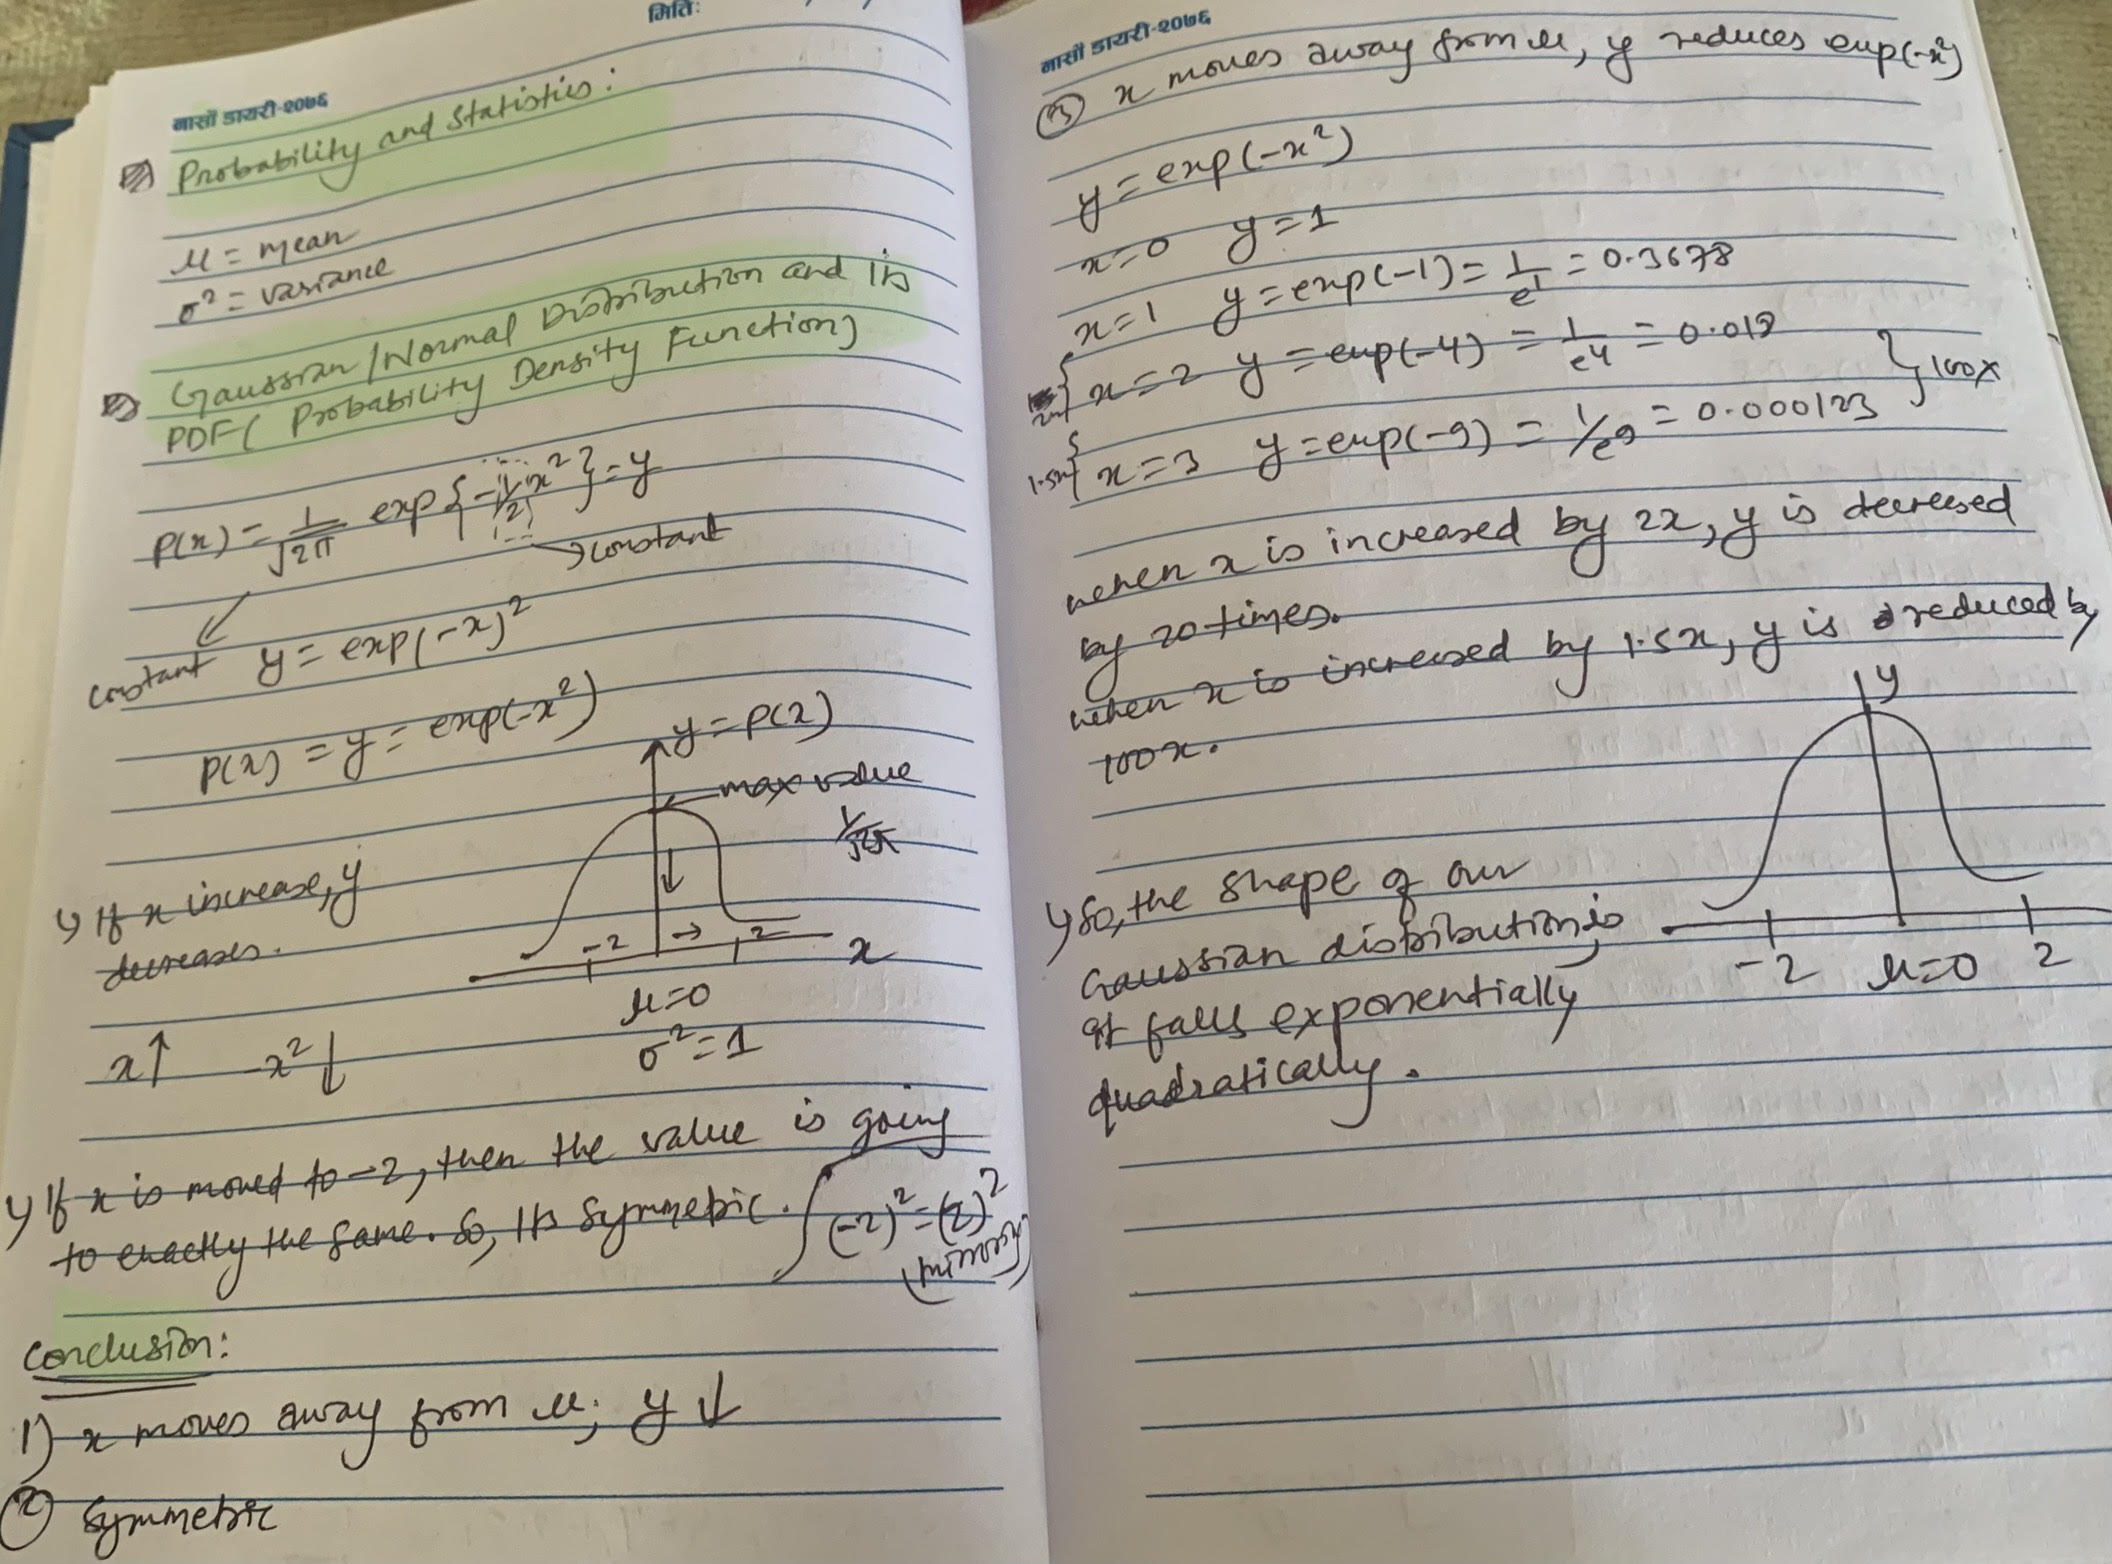 मितिः
नासों डायरी-२०७६
Probability and Statistics:
μ = mean
σ² = variance
Gaussian/Normal Distribution and its
PDF( Probability Density Function)
P(x) = 1/√2π exp{-1/2 x²} = y
→ constant
constant
y = exp(-x)²
P(x) = y = exp(-x²)
y = P(x)
max value
1/√2π
↳ If x increase, y
decreases.
-2 → 2 x
μ=0
σ²=1
x↑ -x²↓
↳ If x is moved to -2, then the value is going
to exactly the same. So, its symmetric.
(-2)² = (2)²
(mirror)
Conclusion:
1) x moves away from μ; y ↓
② Symmetric
नासों डायरी-२०७६
③ x moves away from μ, y reduces exp(-x²)
y = exp(-x²)
x=0 y=1
x=1 y=exp(-1) = 1/e¹ = 0.3678
x=2 y=exp(-4) = 1/e4 = 0.018
x=3 y=exp(-9) = 1/e9 = 0.000123 } 100x
1.5x
when x is increased by 2x, y is decreased
by 20 times.
when x is increased by 1.5x, y is reduced by
100x.
y
↳ So, the shape of our
Gaussian distribution is
it falls exponentially
quadratically.
-2 μ=0 2